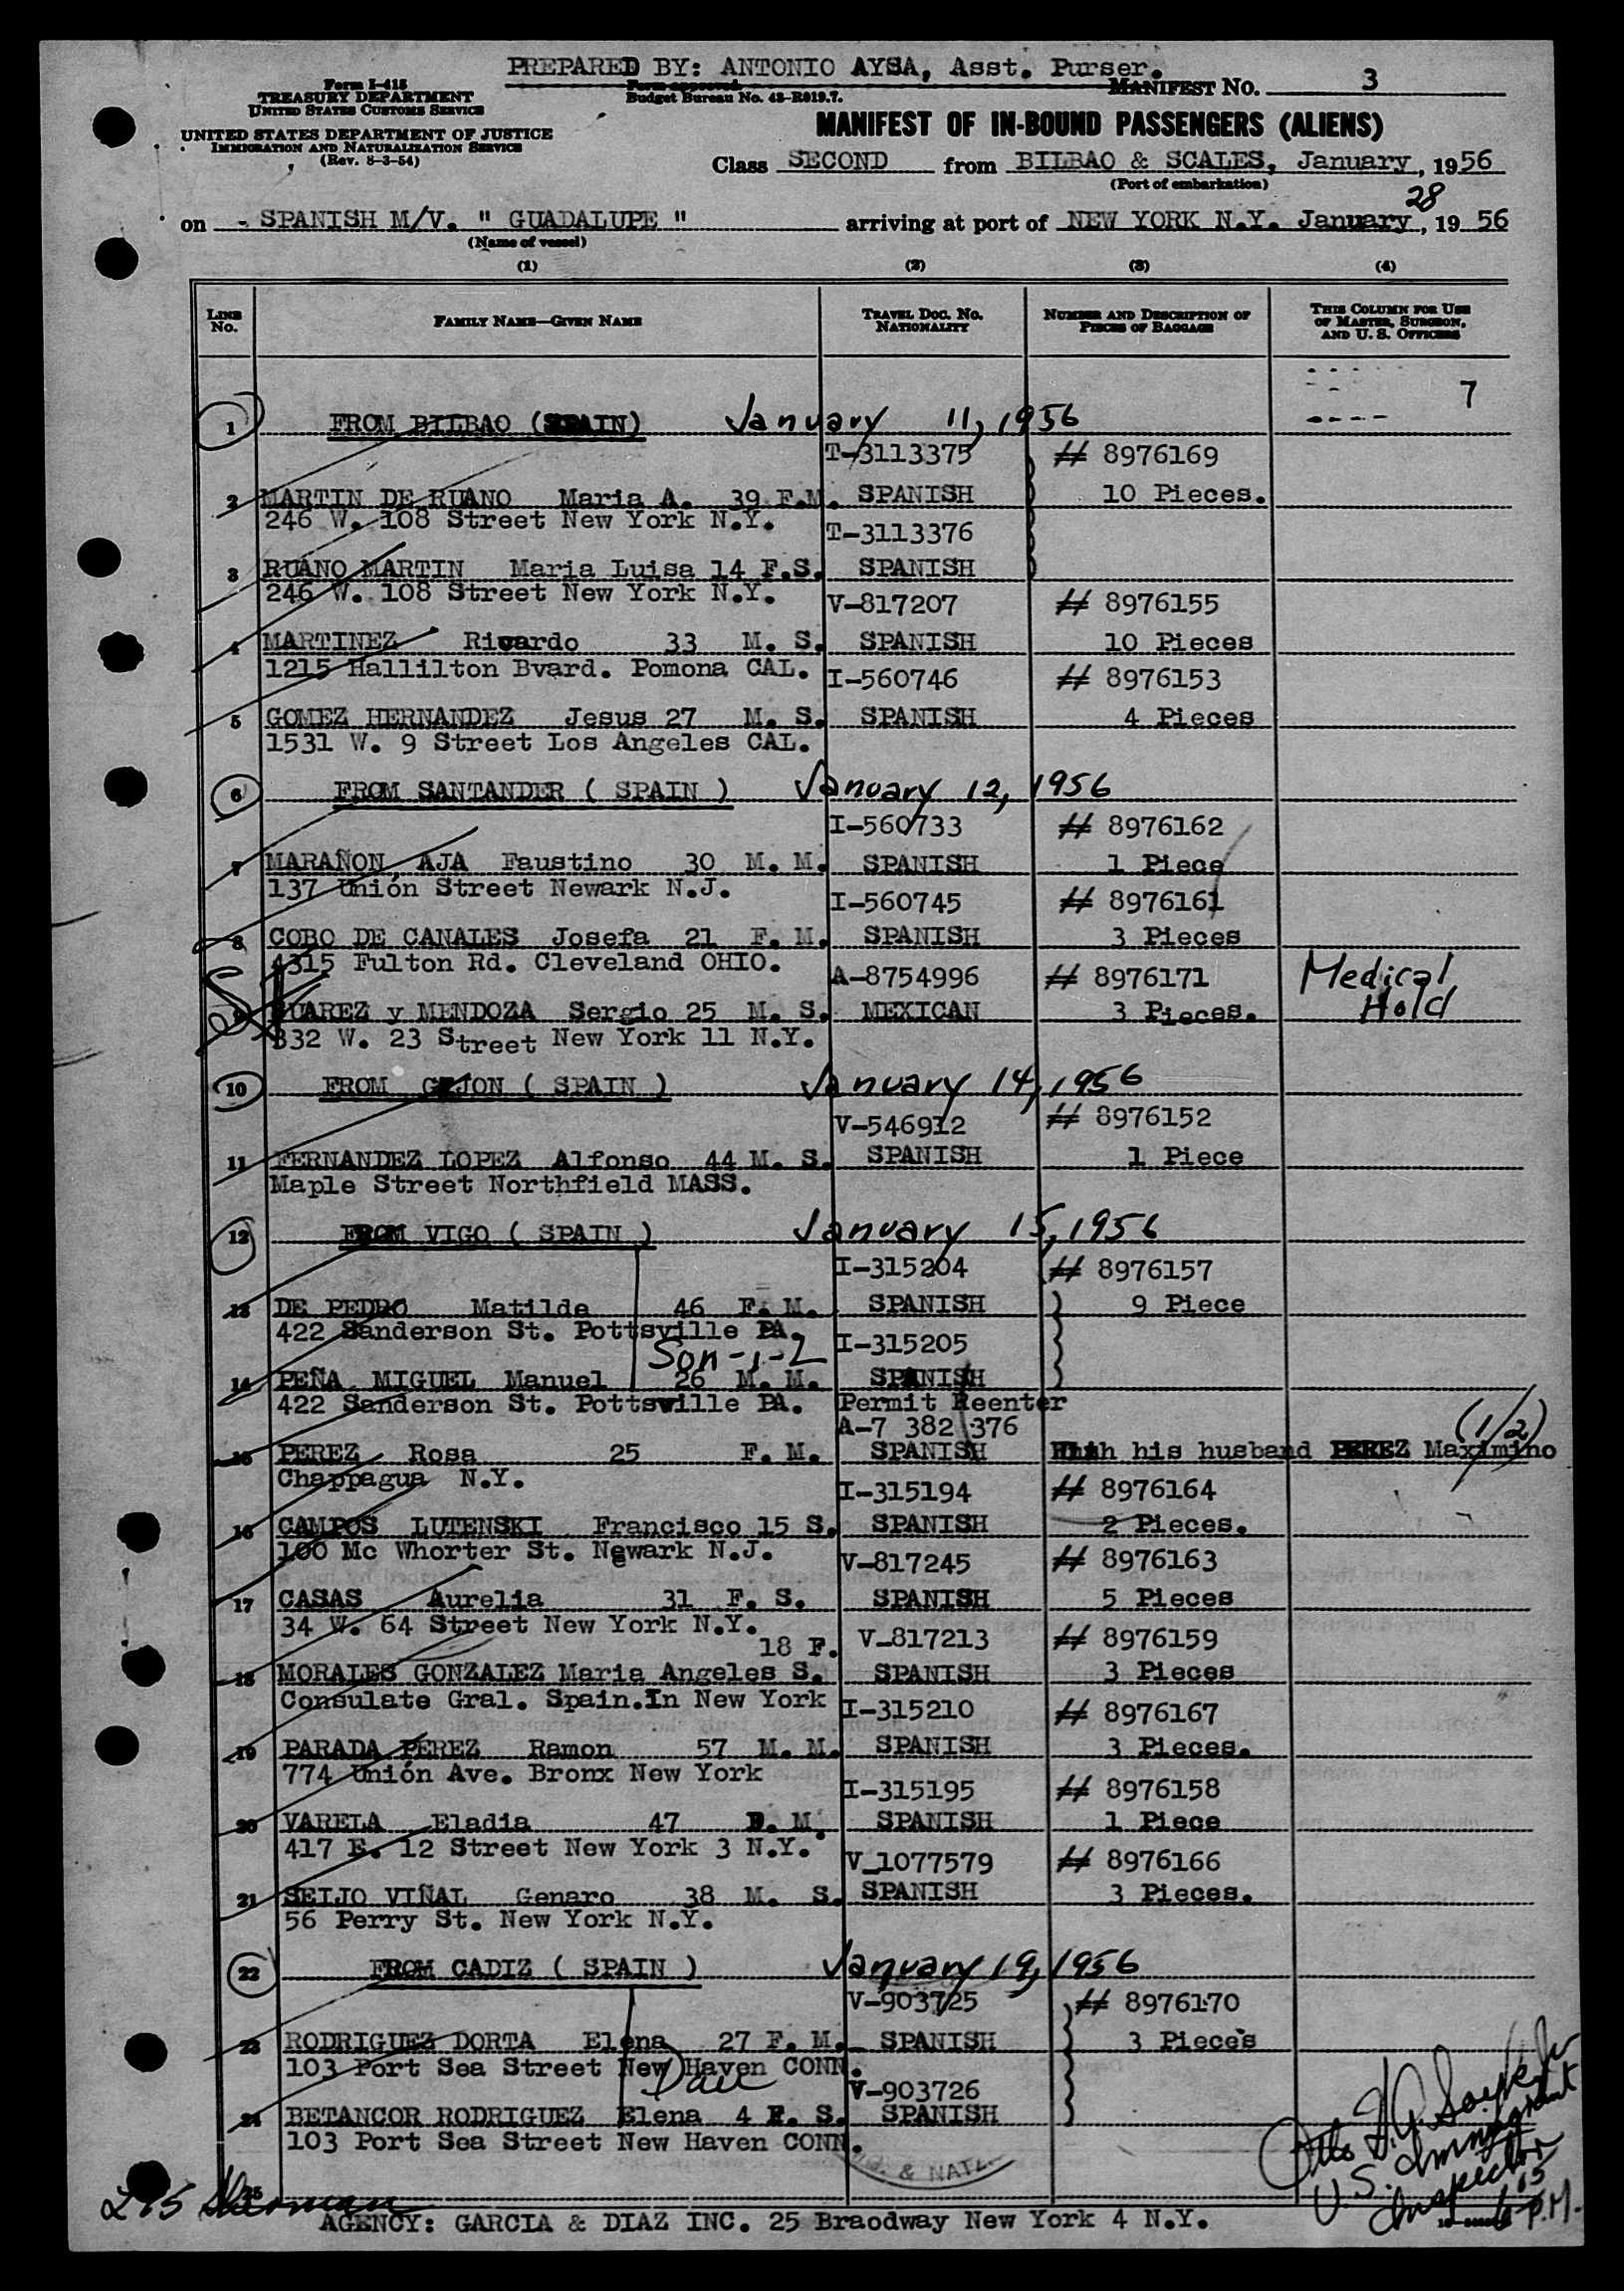 PREPARED BY: ANTONIO AYSA, Asst. Purser.
Form I-415
TREASURY DEPARTMENT
UNITED STATES CUSTOMS SERVICE
Form approved.
Budget Bureau No. 43-R019.7.
MANIFEST NO. 3
UNITED STATES DEPARTMENT OF JUSTICE
IMMIGRATION AND NATURALIZATION SERVICE
(Rev. 8-3-54)
MANIFEST OF IN-BOUND PASSENGERS (ALIENS)
Class SECOND from BILBAO & SCALES, January, 1956
(Port of embarkation)
on - SPANISH M/V. " GUADALUPE " arriving at port of NEW YORK N.Y. January 28, 1956
(Name of vessel)
(1) (2) (3) (4)
LINE NO. FAMILY NAME—GIVEN NAME TRAVEL DOC. NO. NATIONALITY NUMBER AND DESCRIPTION OF PIECES OF BAGGAGE THIS COLUMN FOR USE OF MASTER, SURGEON, AND U. S. OFFICERS
7
1 FROM BILBAO (SPAIN) January 11, 1956
T-3113375 # 8976169
2 MARTIN DE RUANO Maria A. 39 F.M. SPANISH 10 Pieces.
246 W. 108 Street New York N.Y.
T-3113376
3 RUANO MARTIN Maria Luisa 14 F.S. SPANISH
246 W. 108 Street New York N.Y.
V-817207 # 8976155
4 MARTINEZ Ricardo 33 M. S. SPANISH 10 Pieces
1215 Hallilton Bvard. Pomona CAL.
I-560746 # 8976153
5 GOMEZ HERNANDEZ Jesus 27 M. S. SPANISH 4 Pieces
1531 W. 9 Street Los Angeles CAL.
6 FROM SANTANDER ( SPAIN ) January 12, 1956
I-560733 # 8976162
7 MARAÑON AJA Faustino 30 M. M. SPANISH 1 Piece
137 Unión Street Newark N.J.
I-560745 # 8976161
8 COBO DE CANALES Josefa 21 F. M. SPANISH 3 Pieces
4315 Fulton Rd. Cleveland OHIO.
A-8754996 # 8976171 Medical Hold
9 SUAREZ y MENDOZA Sergio 25 M. S. MEXICAN 3 Pieces.
332 W. 23 Street New York 11 N.Y.
10 FROM GIJON ( SPAIN ) January 14, 1956
V-546912 # 8976152
11 FERNANDEZ LOPEZ Alfonso 44 M. S. SPANISH 1 Piece
Maple Street Northfield MASS.
12 FROM VIGO ( SPAIN ) January 15, 1956
I-315204 # 8976157
13 DE PEDRO Matilde 46 F. M. SPANISH 9 Piece
422 Sanderson St. Pottsville PA.
Son-1-2 I-315205
14 PEÑA MIGUEL Manuel 26 M. M. SPANISH
422 Sanderson St. Pottsville PA. Permit Reenter
A-7 382 376 (1/2)
15 PEREZ Rosa 25 F. M. SPANISH With his husband PEREZ Maximino
Chappagua N.Y.
I-315194 # 8976164
16 CAMPOS LUTENSKI Francisco 15 S. SPANISH 2 Pieces.
100 Mc Whorter St. Newark N.J.
V-817245 # 8976163
17 CASAS Aurelia 31 F. S. SPANISH 5 Pieces
34 W. 64 Street New York N.Y.
18 F. V-817213 # 8976159
18 MORALES GONZALEZ Maria Angeles S. SPANISH 3 Pieces
Consulate Gral. Spain.In New York
I-315210 # 8976167
19 PARADA PEREZ Ramon 57 M. M. SPANISH 3 Pieces.
774 Unión Ave. Bronx New York
I-315195 # 8976158
20 VARELA Eladia 47 F. M. SPANISH 1 Piece
417 E. 12 Street New York 3 N.Y.
V_1077579 # 8976166
21 SEIJO VIÑAL Genaro 38 M. S. SPANISH 3 Pieces.
56 Perry St. New York N.Y.
22 FROM CADIZ ( SPAIN ) January 19, 1956
V-903725 # 8976170
23 RODRIGUEZ DORTA Elena 27 F. M. SPANISH 3 Pieces
103 Port Sea Street New Haven CONN.
Dau V-903726
24 BETANCOR RODRIGUEZ Elena 4 F. S. SPANISH
103 Port Sea Street New Haven CONN.
& NATZ.
Otto
U.S. Immigrant
Inspector
25
P.M.
AGENCY: GARCIA & DIAZ INC. 25 Braodway New York 4 N.Y.